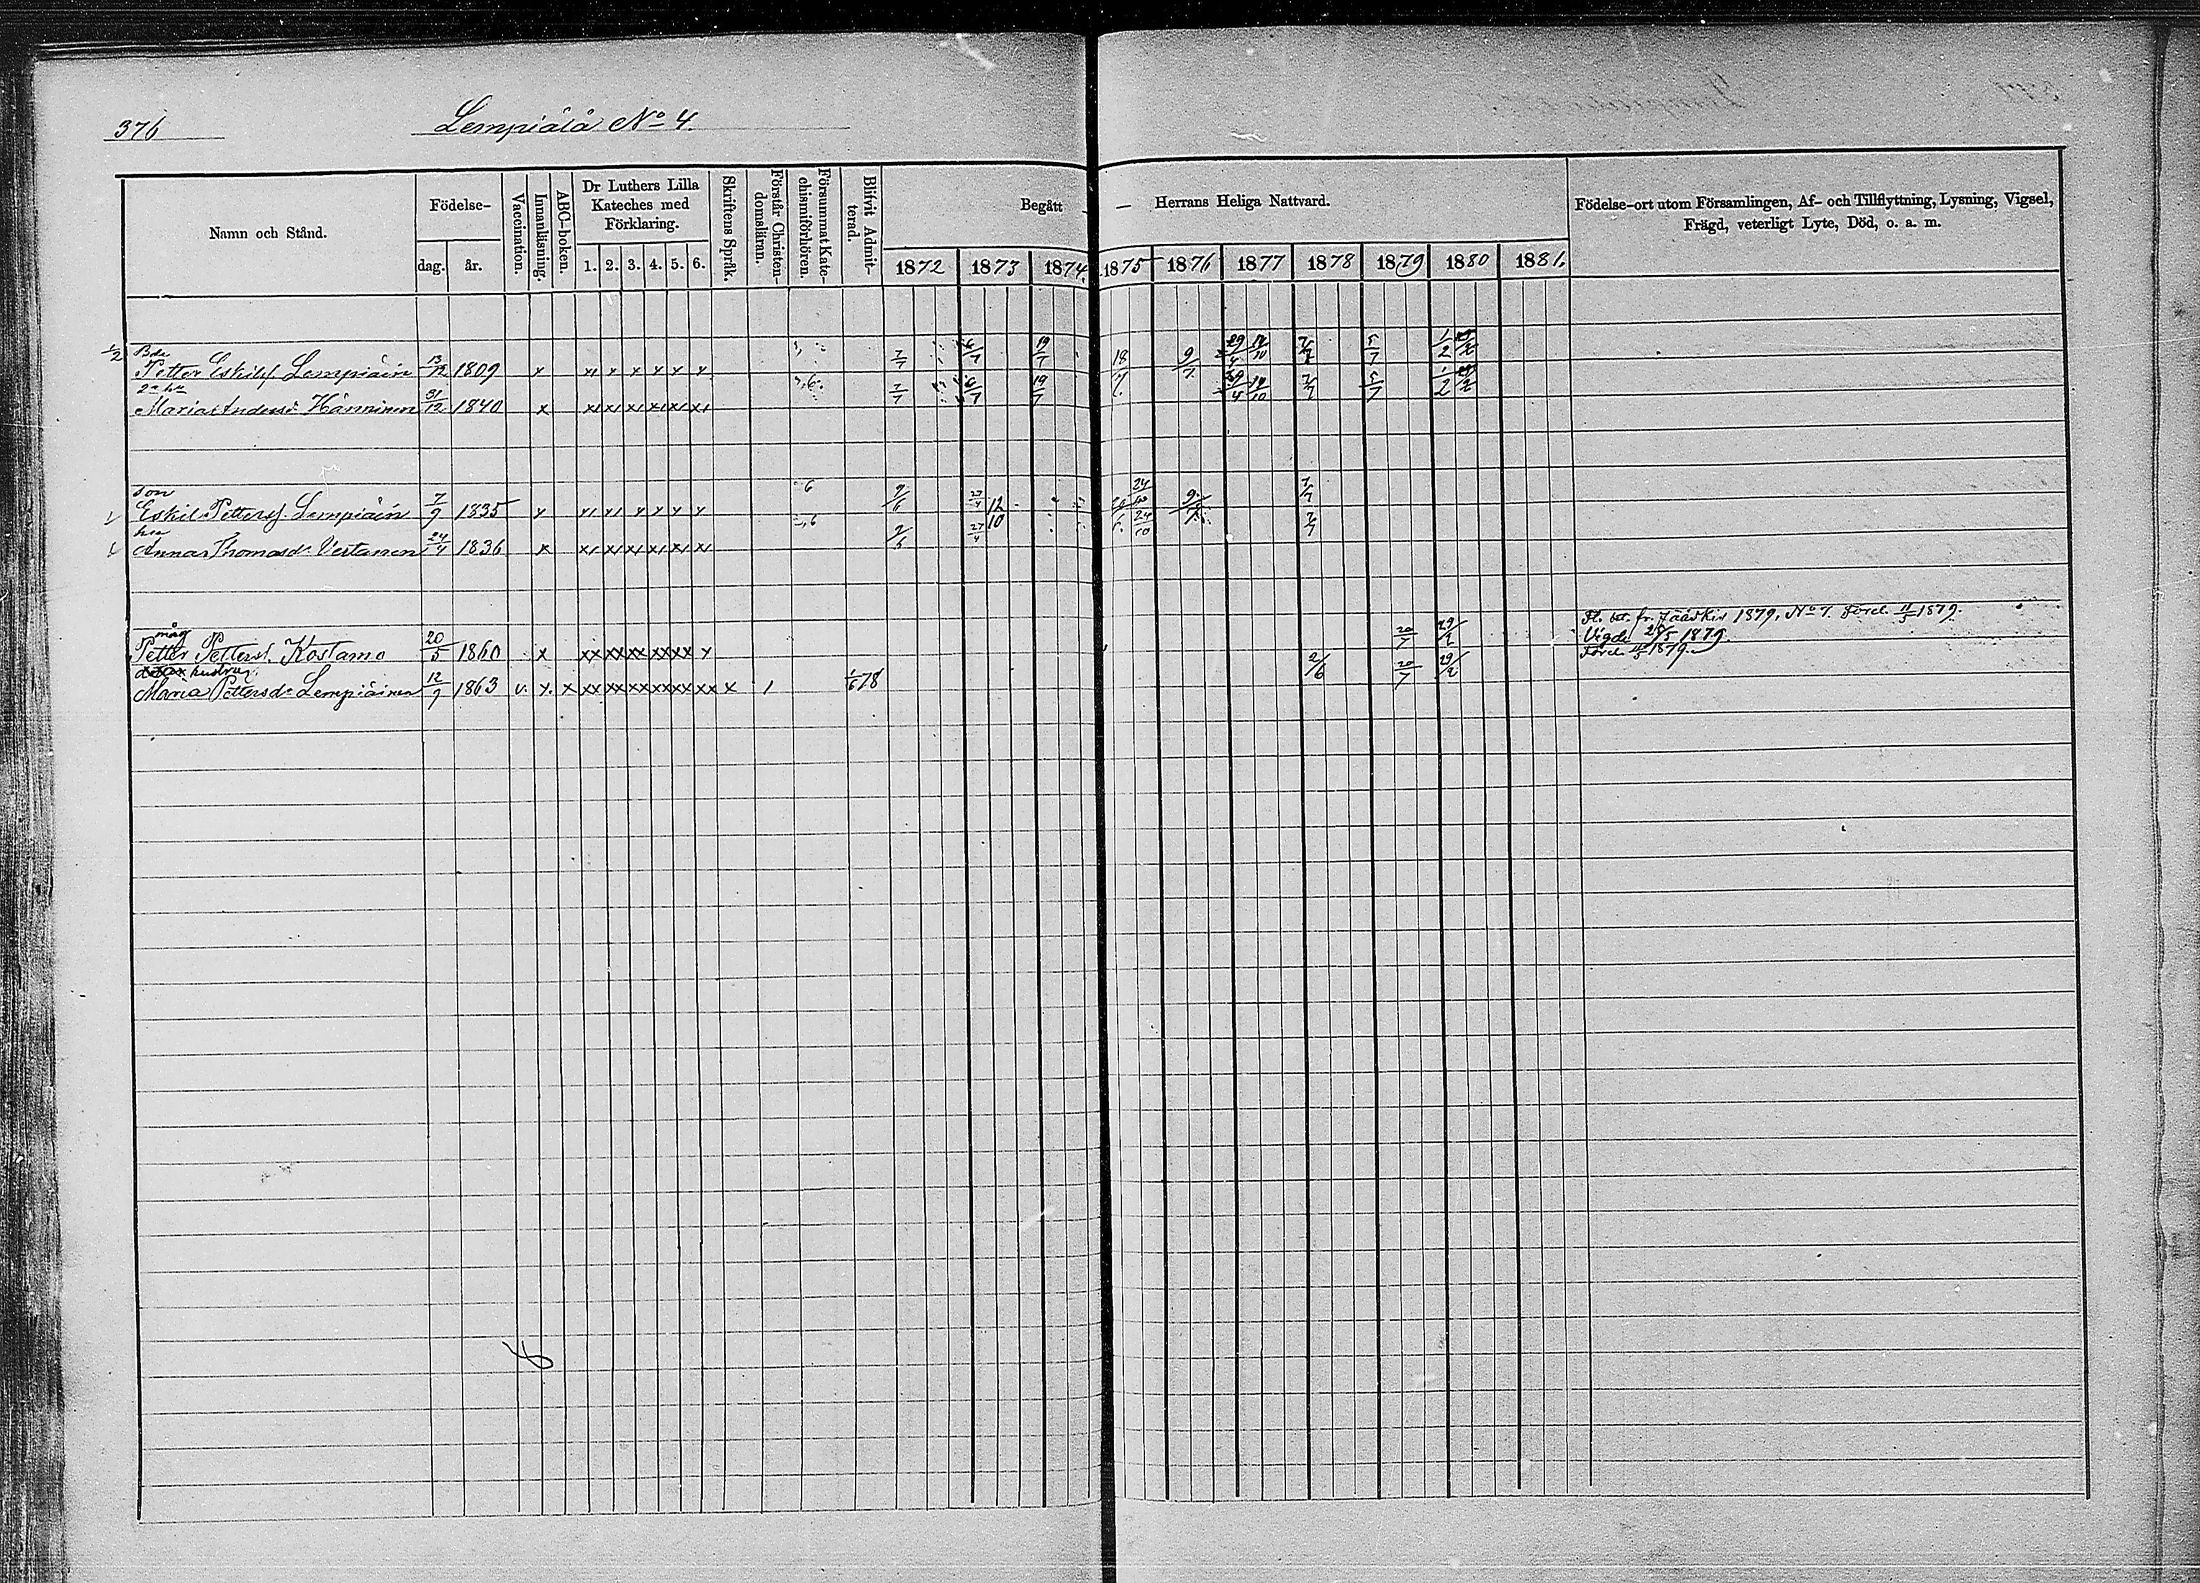 376 Lempiälä No 4.
Namn och Stånd.
Födelse-
dag. år.
Vaccination.
Innanläsning.
ABC-boken.
Dr Luthers Lilla
Kateches med
Förklaring.
1. 2. 3. 4. 5. 6.
Skriftens Språk.
Förstår Christen-
domsläran.
Försummat Kate-
chismiförhören.
Blifvit Admit-
terad.
Begått — — Herrans Heliga Nattvard.
1872 1873 1874. 1875 1876 1877 1878 1879 1880 1881.
Födelse-ort utom Församlingen, Af- och Tillflyttning, Lysning, Vigsel,
Frägd, veterligt Lyte, Död, o. a. m.
1/2 Bde
Petter Eskilss. Lempiäin 13/12 1809 x x x x x x x 7/7 6/7 19/7 18 9/7 29/4 14/10 7/7 5/7 1/2
2a hu
Maria Andersd. Hänninen 31/12 1840 x x x x x x x 7/7 6/7 19/7 7. 29/4 14/10 7/7 5/7 1/2
son
Eskil Petterss. Lempiäin 7/9 1835 x x x x x x x 6 9/6 27/4 12 24/10 9/7 7/7
hu
Anna Thomasd. Vertanen 24/4 1836 x x x x x x x 6 9/6 27/4 10 24/10 7/7
måg
Petter Petterss. Kostamo 20/5 1860 x xx xx xx xx xx x 20/7 29/2 Fl. bet. fr. Jääskis 1879, No 7. Förel. 11/5 1879.
Vigde 29/5 1879.
hustru
Maria Pettersd. Lempiäinen 12/9 1863 v. x. x xx xx xx xx xx xx x 1 1/6 78 2/6 20/7 29/2 Förel. 11/5 1879.